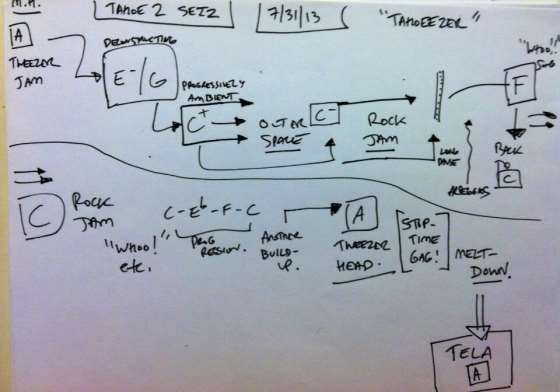 M.H.
TAHOE 2 SET 2
7/31/13
"TAHOEEZER"
A
TWEEZER
JAM
DECONSTRUCTING
E-/G
PROGRESSIVELY
AMBIENT
C+
OUTER
SPACE
C-
ROCK
JAM
LONG
PAUSE
"WHOO!!"
F
BACK
TO
C
C
ROCK
JAM
"WHOO!"
ETC.
C-Eb-F-C
PROG
RESSION.
ANOTHER
BUILD-
UP.
A
TWEEZER
HEAD.
STOP-
TIME
GAG!
MELT-
DOWN.
TELA
A